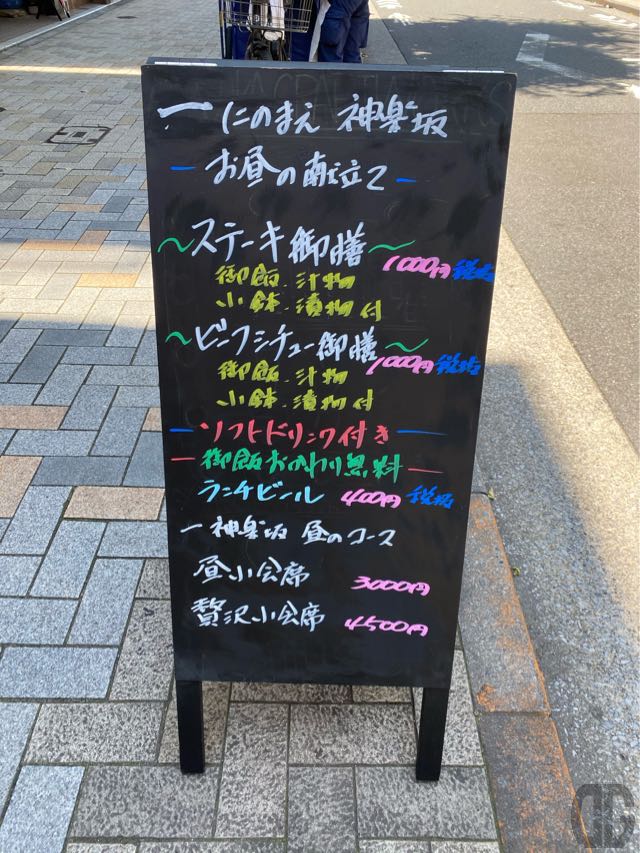 一 にのまえ 神楽坂
お昼の献立て
～ステーキ御膳～ 1000円 税抜
御飯、汁物
小鉢、漬物付
～ビーフシチュー御膳～ 1000円 税抜
御飯、汁物
小鉢、漬物付
ソフトドリンク付き
御飯おかわり無料
ランチビール 400円 税抜
一 神楽坂 昼のコース
昼小会席 3000円
贅沢小会席 4500円